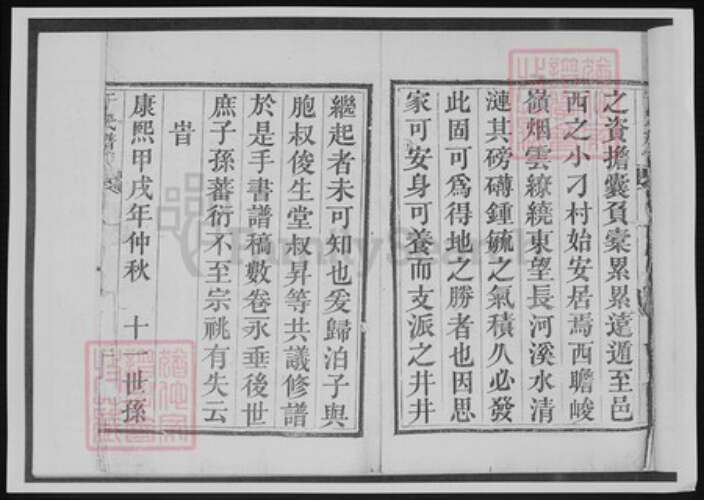 之資擔囊負橐累累達遒至邑
西之小刁村始安居焉西瞻峻
嶺烟雲繚繞東望長河溪水清
漣其磅礴鍾毓之氣積久必發
此固可為得地之勝者也因思
家可安身可養而支派之井井
繼起者未可知也爰歸泊子與
胞叔俊生堂叔昇等共議修譜
於是手書譜稿數卷永垂後世
庶子孫蕃衍不至宗祧有失云
旹
康熙甲戌年仲秋 十 世孫
FamilySearch